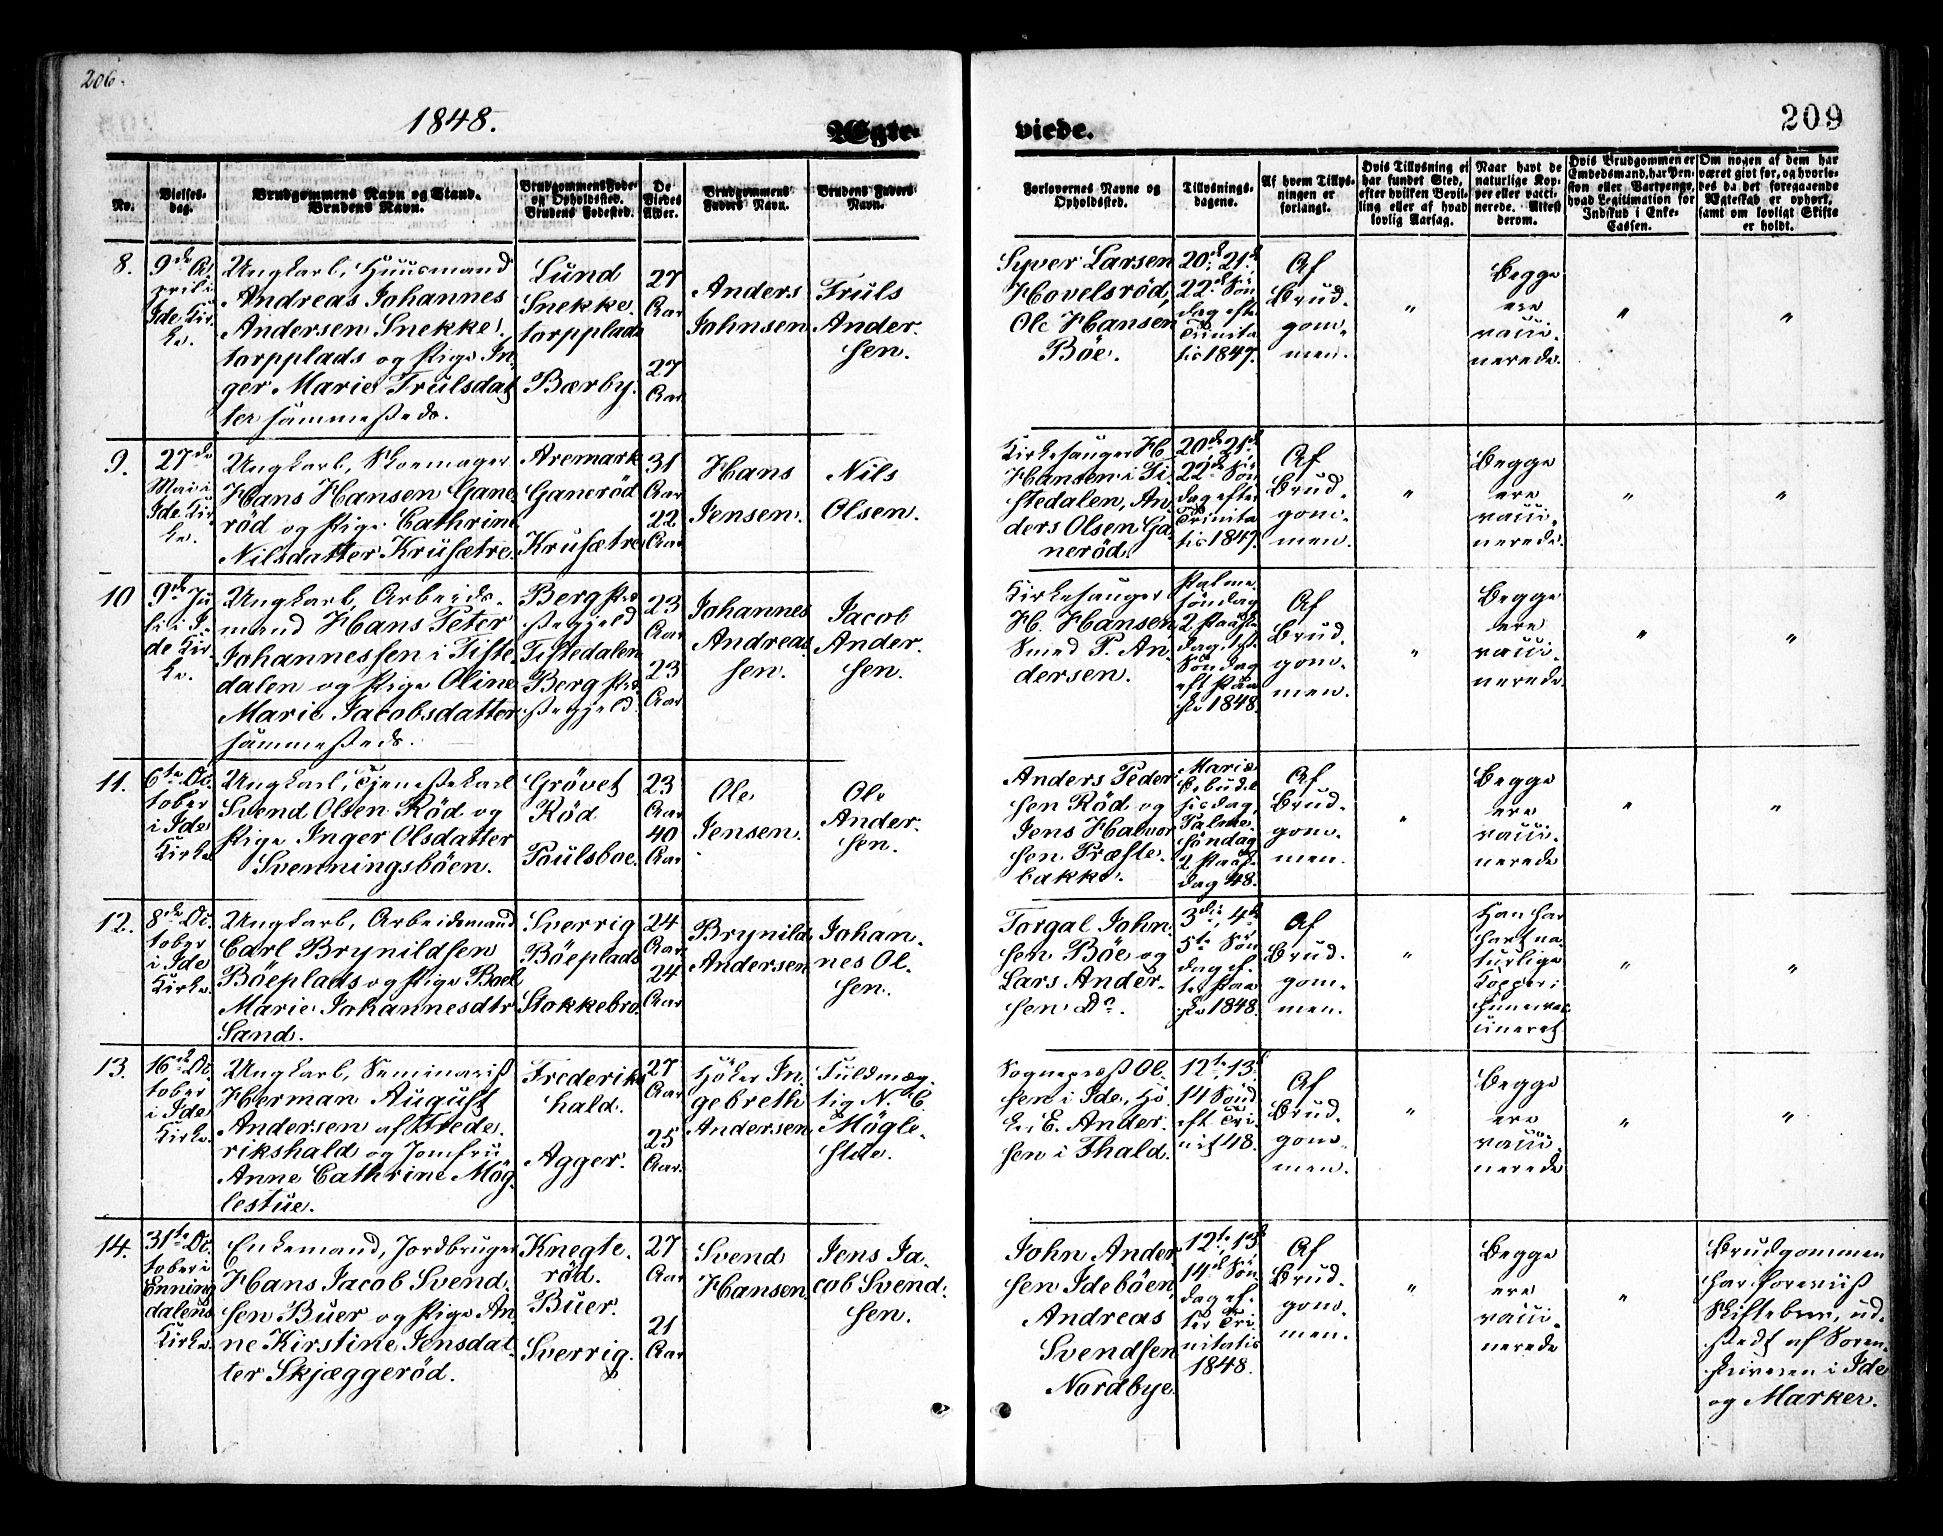 206.
1848.
Ægte-
viede.
209
No.
Vielses-
dag.
Brudgommens Navn og Stand.
Brudens Navn.
Brudgommens Føde-
og Opholdssted.
Brudens Fødested.
De
Viedes
Alder.
Brudgommens
Faders Navn.
Brudens Faders
Navn.
Forlovernes Navne og
Opholdssted.
Tillysnings-
dagene.
Af hvem Tillys-
ningen er
forlangt.
Hvis Tillysning ei
har fundet Sted,
efter hvilken Bevil-
ling eller af hvad
lovlig Aarsag.
Naar havt de
naturlige Kop-
per eller vacci-
nerede. Attest
derom.
Hvis Brudgommen er
Embedsmand, har Pen-
sion eller Vartpenge,
hvad Legitimation for
Indskud i Enke-
Cassen.
Om nogen af dem har
været givt før, og hvorle-
des da det foregaaende
Ægteskab er ophørt,
samt om lovligt Skifte
er holdt.
8.
9de A-
pril i
Ide Kir-
ke.
Ungkarl, Huusmand
Andreas Johannes
Andersen Snekke-
torpplads og Pige In-
ger Marie Trulsdat
ter sammesteds.
Lund
Snekke-
torpplads
Bærby.
27
Aar
27
Aar
Anders
Johnsen
Truls
Ander-
sen.
Syver Larsen
Hovelsröd,
Ole Hansen
Böe.
20de, 21de
22de Søn
dag eft.
Trinita
tis 1847.
Af
Brud-
gom-
men.
"
Begge
ere
vacci-
nerede.
"
"
9.
27de
Mai i
Ide Kir-
ke.
Ungkarl, Skoemager
Hans Hansen Gane
röd og Pige Cathrine
Nilsdatter Krusætre.
Aremark
Ganeröd
Krusætre
31
Aar
22
Aar
Hans
Jensen.
Nils
Olsen.
Kirkesanger H.
Hansen i Ti-
stedalen, An-
ders Olsen Ga-
neröd.
20de, 21de
22de Søn
dag efter
Trinita
tis 1847.
Af
Brud-
gom-
men.
"
Begge
ere
vacci-
nerede.
"
"
10
9de Ju
li i I-
de Kir-
ke.
Ungkarl, Arbeids-
mand Hans Peter
Johannessen i Tiste-
dalen og Pige Oline
Marie Jacobsdatter
sammesteds.
Berg Præ
stegjeld
Tistedalen
Berg Præ
stegjeld.
23
Aar
23
Aar
Johannes
Andreas-
sen.
Jacob
Ander-
sen.
Kirkesanger
H. Hansen
Smed P. An-
dersen.
Palme-
søndag
2 Paaske
dag, 1ste
Søndag
eft Paa
ske 1848.
Af
Brud-
gom-
men.
"
Begge
ere
vacci-
nerede.
"
"
11.
6te Oc-
tober
i Ide
Kirke
Ungkarl, Tjenestekarl
Svend Olsen Röd og
Pige Inger Olsdatter
Svenningsböen.
Grövet
Röd
Paulsboe.
23
Aar
40
Aar
Ole
Jensen.
Ole
Ander-
sen.
Anders Peder-
sen Röd og
Jens Halvor
sen Præste-
bakke.
Mariæ
Bebudel
sesdag,
Palme-
søndag
2 Paaske
dag 48.
Af
Brud-
gom-
men.
"
Begge
ere
vacci-
nerede
"
"
12.
8de Oc-
tober
i Ide
Kirke.
Ungkarl, Arbeidsmand
Carl Brynildsen
Böeplads og Pige Boel
Marie Johannesdtr
Sand.
Sverrig
Böeplads
Stokkebro.
24
Aar
24
Aar
Brynild
Andersen
Johan-
nes Ol-
sen.
Torgal John-
sen Böe og
Lars Ander-
sen Do.
3die, 4de
5te Søn
dag ef-
ter Paa
ske 1848.
Af
Brud-
gom-
men.
"
Han har
havt na-
turlige
Kopper,
hun er vac
cineret
"
"
13.
16de Oc-
tober
i Ide
Kirke.
Ungkarl, Seminarist
Herman August
Andersen af Frede-
rikshald og Jomfru
Anne Cathrine Mög-
lestue.
Frederiks
hald.
Agger.
27
Aar
25
Aar.
Höker In-
gebreth
Andersen
Fuldmæg-
tig N. C.
Mögle-
stue.
Sognepræst Ol-
sen i Ide, Hö-
ker E. Ander-
sen i Fhald.
12te, 13de
14 Sønd
eft Tri-
nit 48.
Af
Brud-
gom-
men.
"
Begge
ere
vacci-
nerede
"
"
14.
31te Oc-
tober i
Enning
dalens
Kirke.
Enkemand, Jordbruger
Hans Jacob Svend-
sen Buer og Pige An-
ne Kirstine Jensdat-
ter Skjæggeröd.
Knegte-
röd.
Buer.
Sverrig.
27
Aar
21
Aar
Svend
Hansen.
Jens Ja-
cob Svend-
sen.
John Ander
sen Ideböen,
Andreas
Svendsen
Nordbye
12te, 13de
14de Søn
dag ef-
ter Tri-
nitatis
1848.
Af
Brud-
gom-
men.
"
Begge
ere
vacci-
nerede
"
Brudgommen
har foreviist
Skiftebrev, ud-
stedt af Soren-
skriveren i Ide
og Marker.